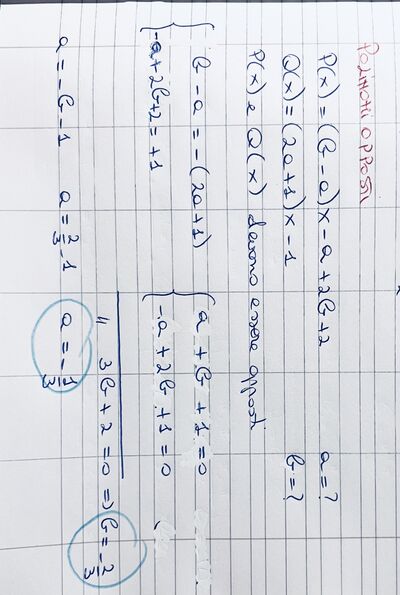 Polinomi opposti
P(x) = (b-a)x - a + 2b + 2 a = ?
Q(x) = (2a+1)x - 1 b = ?
P(x) e Q(x) devono essere opposti
b - a = -(2a+1) a + b + 1 = 0
-a + 2b + 2 = +1 -a + 2b + 1 = 0
// 3b + 2 = 0 => b = -2/3
a = -b - 1 a = 2/3 - 1 a = -1/3